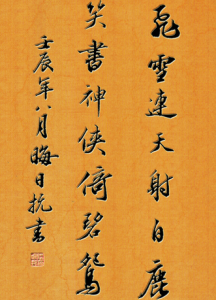 飛雪連天射白鹿
笑書神俠倚碧鴛
壬辰年八月晦日抗書